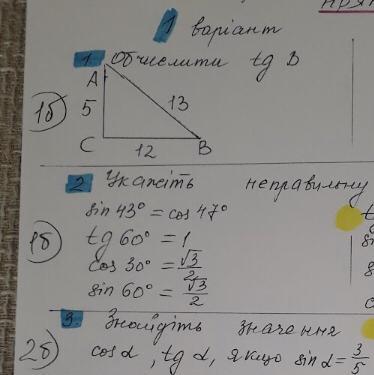 1 варіант
1. Обчислити tg B
A
1б) 5 13
C 12 B
2 Укажіть неправильну
sin 43° = cos 47°
1б) tg 60° = 1
cos 30° = √3/2
sin 60° = √3/2
3. Знайдіть значення
2б) cos α, tg α, якщо sin α = 3/5